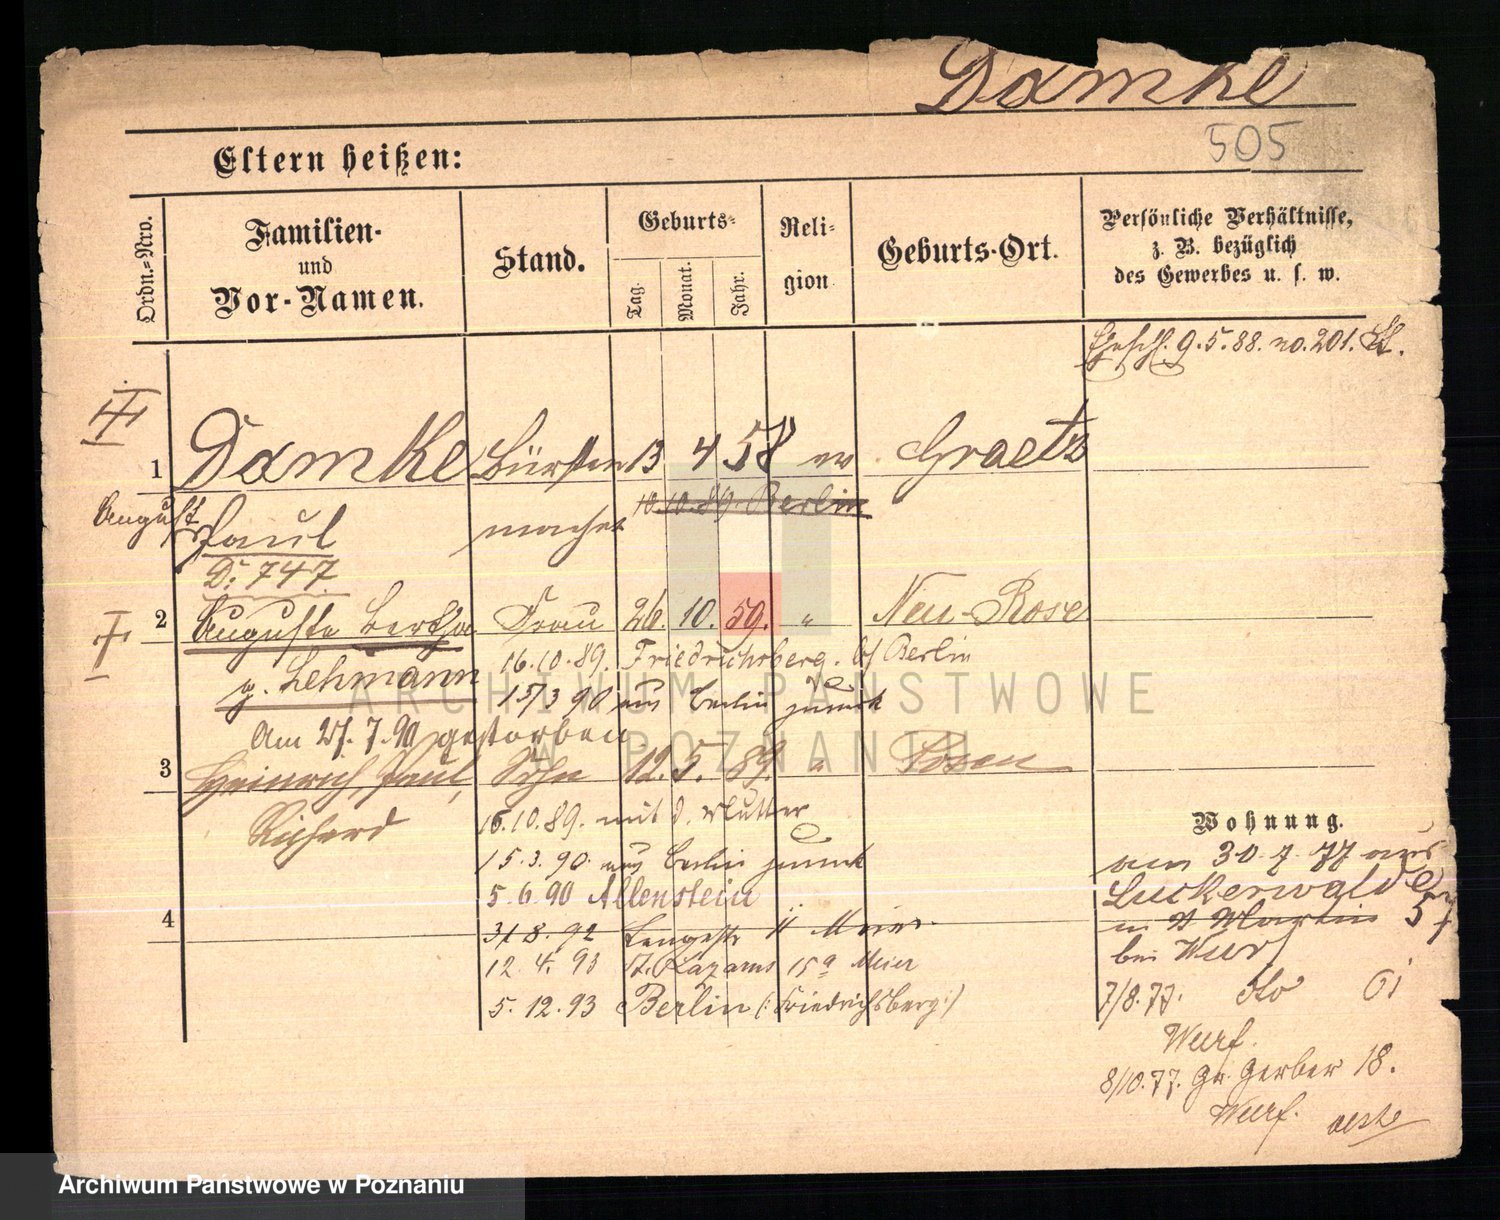 Damke
505
Eltern heißen:
Ordn.-Nro.
Familien-
und
Vor-Namen.
Stand.
Geburts-
Tag.
Monat.
Jahr.
Reli-
gion
Geburts-Ort.
Persönliche Verhältnisse,
z. B. bezüglich
des Gewerbes u. s. w.
Geschl. 9.5.88. no. 201.
1 Damke Bürsten 13 4 58 ev Graetz
10.10.89. Berlin
August Paul macher
D. 747.
2 Auguste Bertha Frau 26. 10. 59. " Neu-Rose
g. Lehmann 16.10.89. Friedrichsberg. b/ Berlin
15/3 90 aus Berlin zurück
Am 25. 7. 90 gestorben
3 Heinrich, Paul, Sohn 12. 5. 89. " Posen
Richard 16.10.89. mit d. Mutter
15.3.90. aus Berlin zurück
5.6.90 Allenstein
4
31 8. 92 Langestr 11 Meier
12. 4. 93 St. Lazarus 15a Meier
5. 12. 93 Berlin (: Friedrichsberg :)
Wohnung.
am 30.7.77 aus
Luckenwalde
in St Martin 57
bei Wurf
7/8.77. dto 61
Wurf.
8/10.77. Gr. Gerber 18.
Wurf.
ARCHIWUM PAŃSTWOWE
W POZNANIU
Archiwum Państwowe w Poznaniu